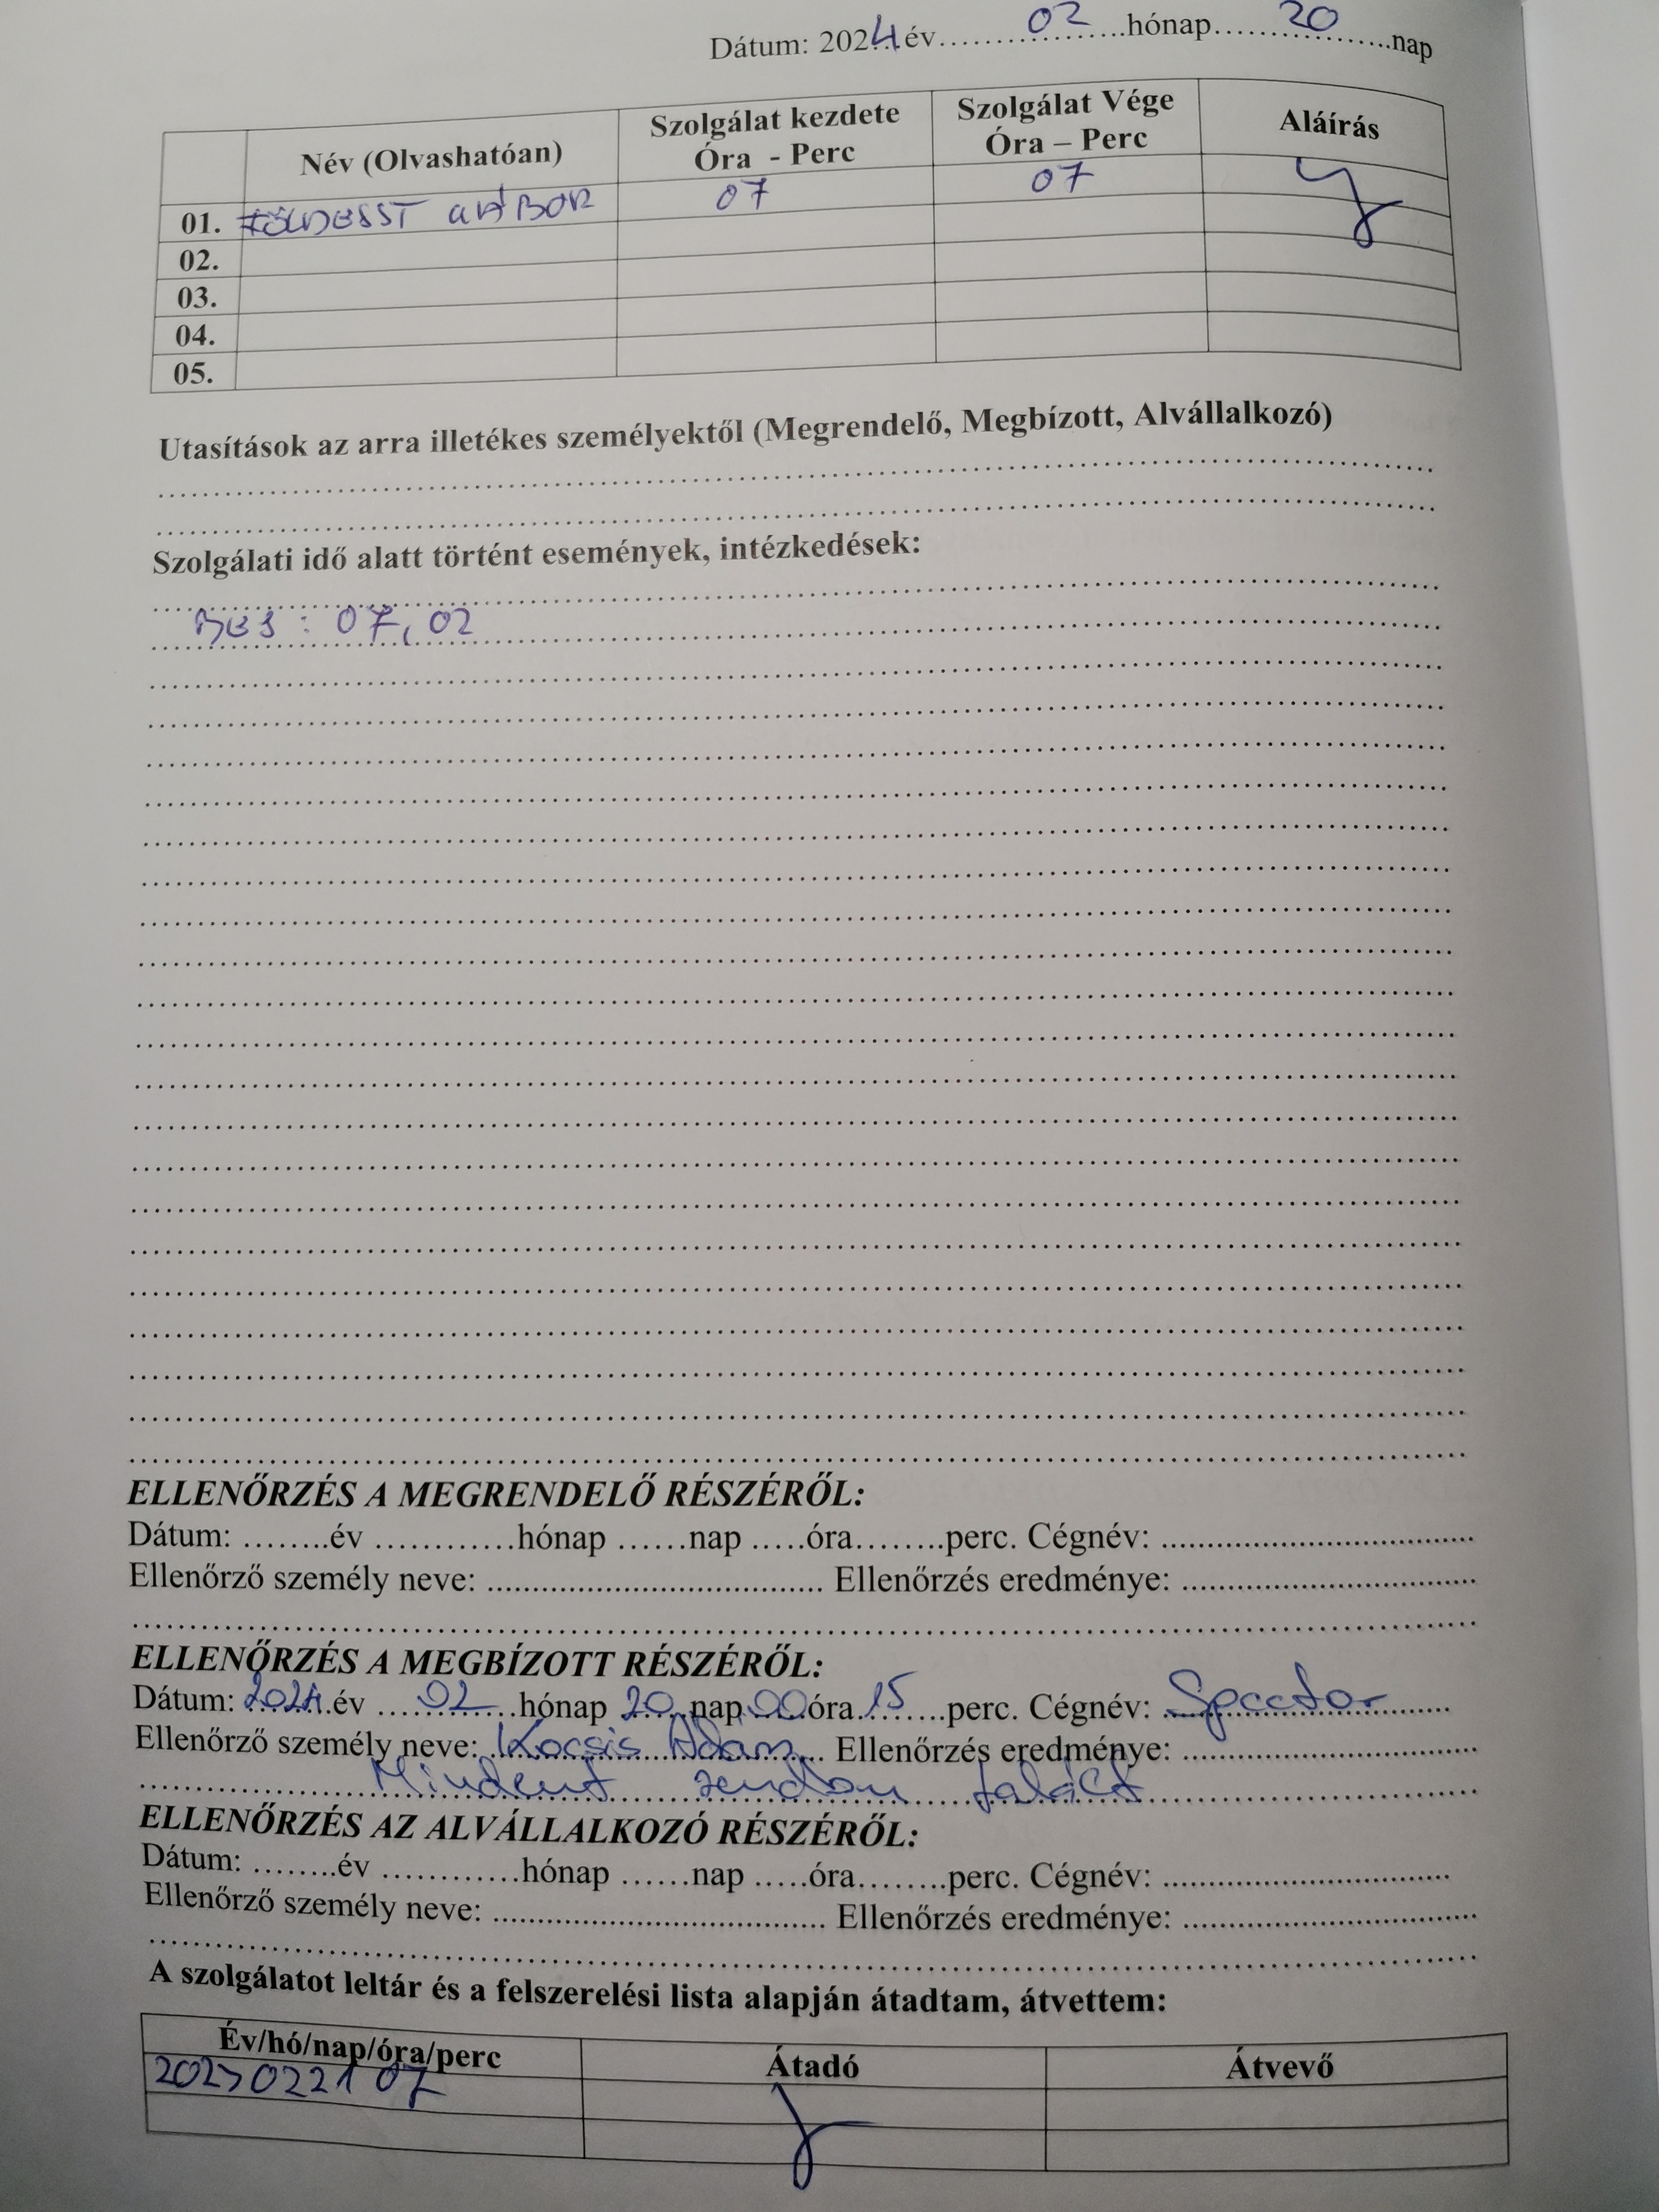 Dátum: 2024 év 02 hónap 20 nap
Név (Olvashatóan) Szolgálat kezdete Óra - Perc Szolgálat Vége Óra – Perc Aláírás
01. 07 07
02.
03.
04.
05.
Utasítások az arra illetékes személyektől (Megrendelő, Megbízott, Alvállalkozó)
Szolgálati idő alatt történt események, intézkedések:
07,02
ELLENŐRZÉS A MEGRENDELŐ RÉSZÉRŐL:
Dátum: ........év ............hónap ......nap .....óra........perc. Cégnév: ..............................
Ellenőrző személy neve: .................................. Ellenőrzés eredménye: ..............................
ELLENŐRZÉS A MEGBÍZOTT RÉSZÉRŐL:
Dátum: 2024 év 02 hónap 20 nap 00 óra 15 perc. Cégnév:
Ellenőrző személy neve: Kocsis Ádám Ellenőrzés eredménye: ..............................
Mindent rendben talált
ELLENŐRZÉS AZ ALVÁLLALKOZÓ RÉSZÉRŐL:
Dátum: ........év ............hónap ......nap .....óra........perc. Cégnév: ..............................
Ellenőrző személy neve: .................................. Ellenőrzés eredménye: ..............................
A szolgálatot leltár és a felszerelési lista alapján átadtam, átvettem:
Év/hó/nap/óra/perc Átadó Átvevő
07